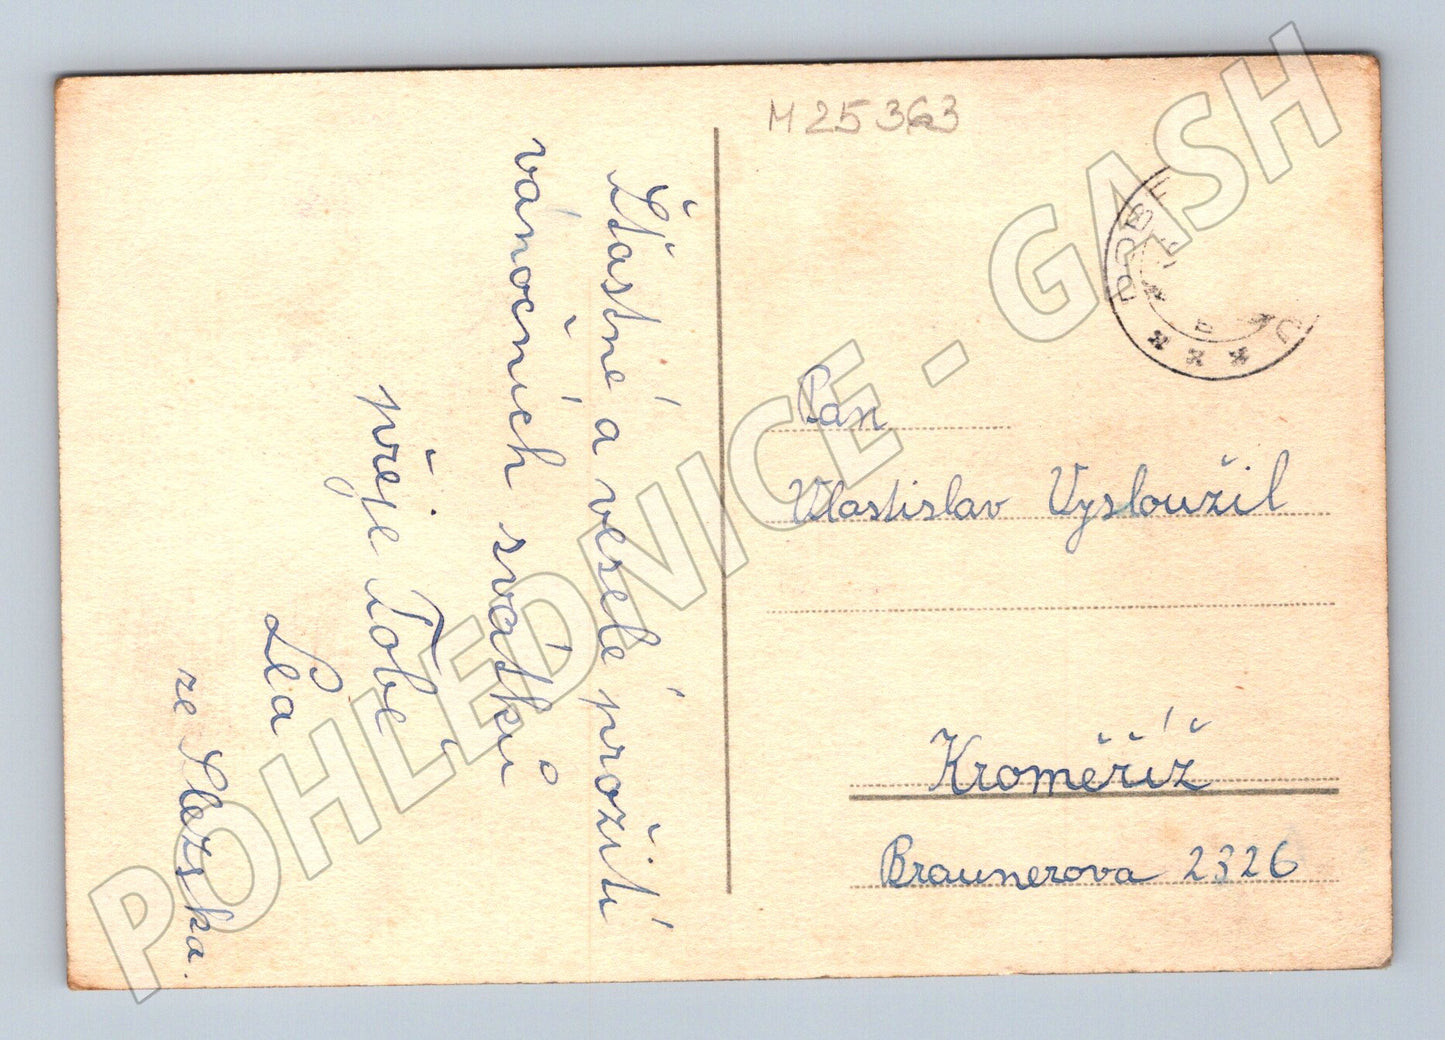 M 25363
Šťastné a veselé prožití
vánočních svátků
přeje Tobě
Lea
ze Slezska.
Pan
Vlastislav Vysloužil
Kroměříž
Braunerova 2326
POHLEDNICE - GASH